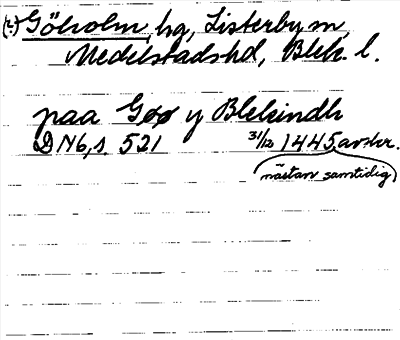 (2) Göholm hg, Listerby sn,
Medelstads hd, Blek. l.
paa Goø y Blekindh
DN 6, s. 521 31/12 1445 avskr.
nästan samtidig